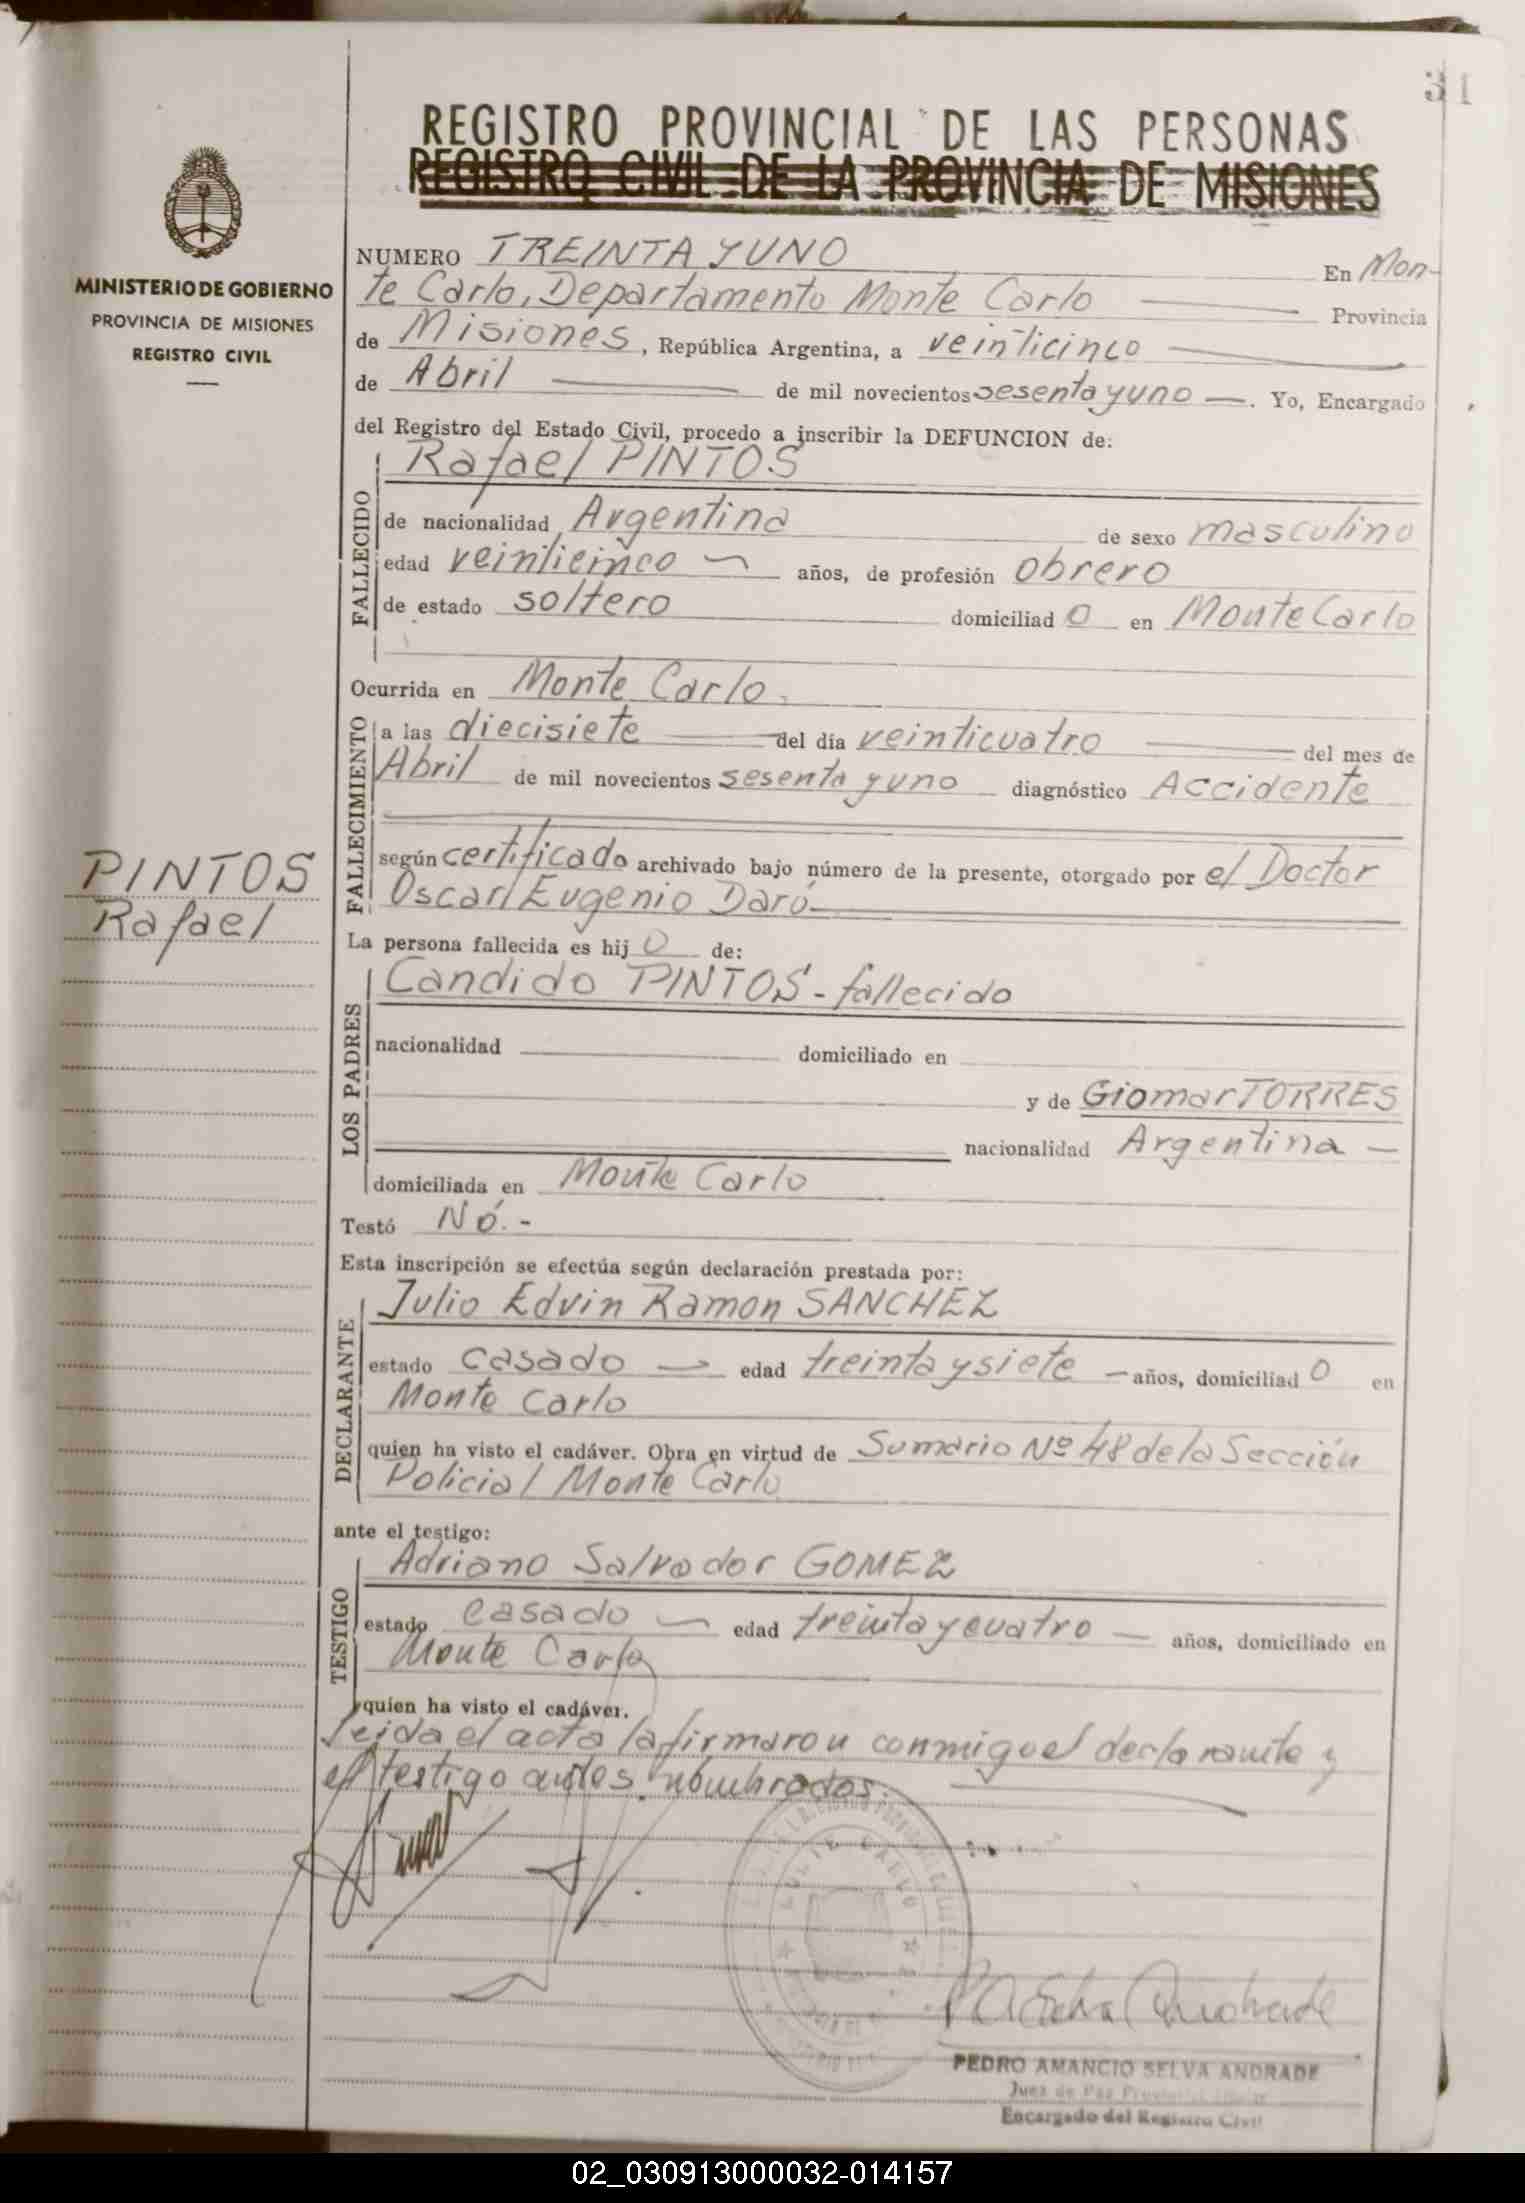 31
REGISTRO PROVINCIAL DE LAS PERSONAS
REGISTRO CIVIL DE LA PROVINCIA DE MISIONES
MINISTERIO DE GOBIERNO
PROVINCIA DE MISIONES
REGISTRO CIVIL
NUMERO TREINTA Y UNO En Mon-
te Carlo, Departamento Monte Carlo Provincia
de Misiones, República Argentina, a veinticinco
de Abril de mil novecientos sesenta y uno. Yo, Encargado
del Registro del Estado Civil, procedo a inscribir la DEFUNCION de:
FALLECIDO
Rafael PINTOS
de nacionalidad Argentina de sexo masculino
edad veinticinco años, de profesión obrero
de estado soltero domiciliad o en Monte Carlo
Ocurrida en Monte Carlo.
FALLECIMIENTO
a las diecisiete del día veinticuatro del mes de
Abril de mil novecientos sesenta y uno diagnóstico Accidente
según certificado archivado bajo número de la presente, otorgado por el Doctor
Oscar Eugenio Daró
PINTOS
Rafael
La persona fallecida es hij o de:
LOS PADRES
Candido PINTOS - fallecido
nacionalidad domiciliado en
y de Giomar TORRES
nacionalidad Argentina -
domiciliada en Monte Carlo
Testó Nó.-
Esta inscripción se efectúa según declaración prestada por:
DECLARANTE
Julio Edvin Ramon SANCHEZ
estado casado edad treinta y siete - años, domiciliad o en
Monte Carlo
quien ha visto el cadáver. Obra en virtud de Sumario Nº 48 de la Sección
Policial Monte Carlo
ante el testigo:
TESTIGO
Adriano Salvador GOMEZ
estado casado edad treinta y cuatro - años, domiciliado en
Monte Carlo
quien ha visto el cadáver.
Leida el acta la firmaron conmigo el declarante y
el testigo antes nombrados.
PEDRO AMANCIO SELVA ANDRADE
Juez de Paz
Encargado del Registro Civil
02_030913000032-014157